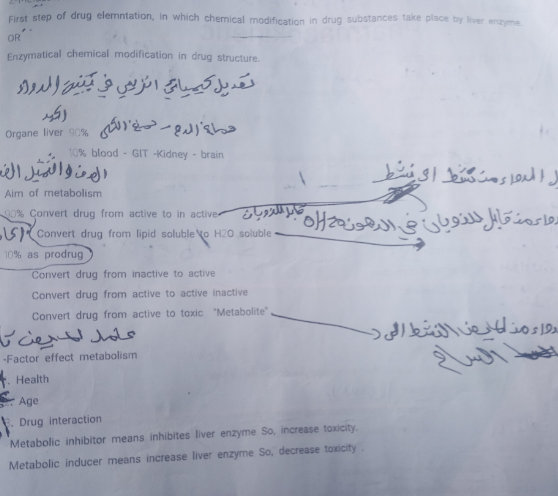 First step of drug elemntation, in which chemical modification in drug substances take place by liver enzyme.
OR
Enzymatical chemical modification in drug structure.
تعديل كيميائي انزيمي في الدواء
الكبد
Organe liver 90%
10% blood - GIT -Kidney - brain
الهدف
Aim of metabolism
90% Convert drug from active to in active
قابل للذوبان
Convert drug from lipid soluble to H2O soluble
من قابل للذوبان في الدهون H2O
10% as prodrug
Convert drug from inactive to active
Convert drug from active to active inactive
Convert drug from active to toxic "Metabolite"
النشط الى
السام
-Factor effect metabolism
. Health
. Age
. Drug interaction
Metabolic inhibitor means inhibites liver enzyme So, increase toxicity.
Metabolic inducer means increase liver enzyme So, decrease toxicity .